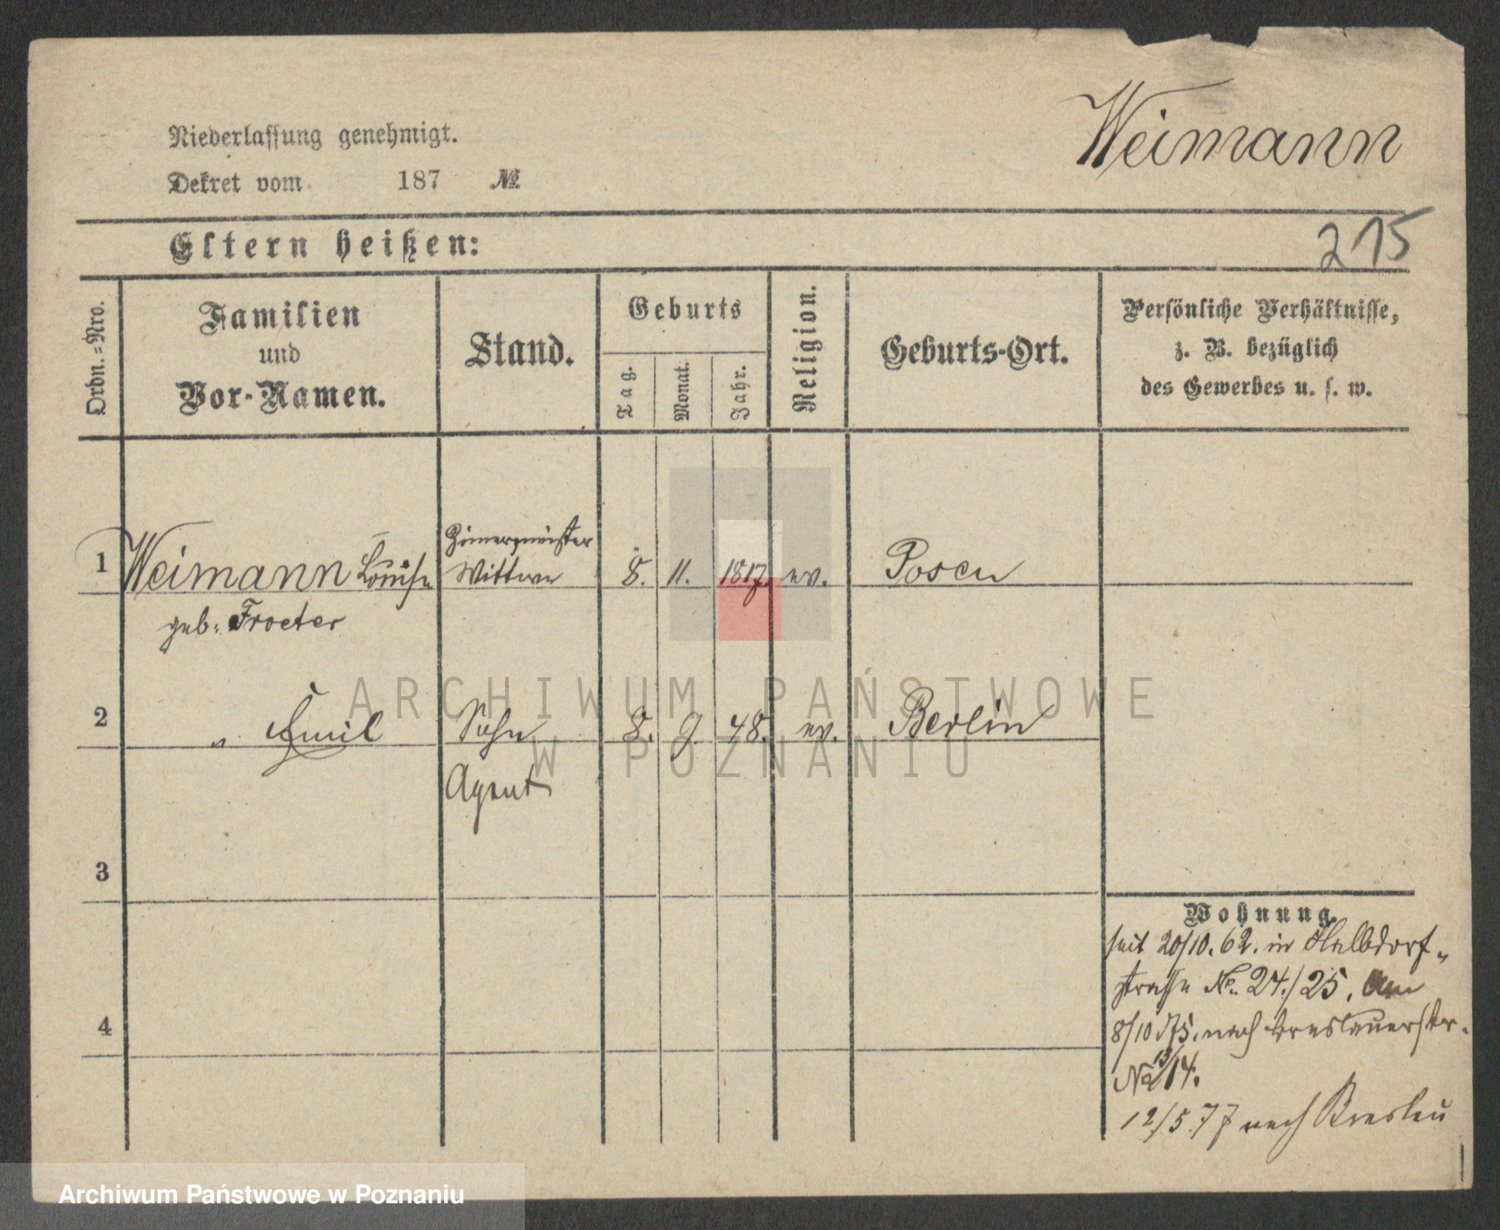 Weimann
Niederlassung genehmigt.
Dekret vom 187 №
Eltern heißen:
215
Ordn.=Nro.
Familien
und
Vor-Namen.
Stand.
Geburts
Tag.
Monat.
Jahr.
Religion.
Geburts-Ort.
Persönliche Verhältnisse,
z. B. bezüglich
des Gewerbes u. s. w.
1 Weimann Louise Zimmermeister Wittwe 8. 11. 1817. ev. Posen
geb. Froeter
2 " Emil Sohn 8. 9. 48. ev. Berlin
Agent
3
4
Wohnung.
seit 20/10. 62. in Halbdorf-
strasse No. 24./25. Am
8/10 75. nach Breslauerstr.
No 13/14.
12/5 77 nach Breslau
ARCHIWUM PAŃSTWOWE
W POZNANIU
Archiwum Państwowe w Poznaniu